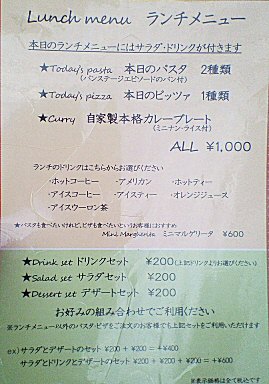 Lunch menu ランチメニュー
本日のランチメニューにはサラダ・ドリンクが付きます
★Today's pasta 本日のパスタ 2種類
(パンステージエピソードのパン付)
★Today's pizza 本日のピッツァ 1種類
★Curry 自家製本格カレープレート
(ミニナン・ライス付)
ALL ¥1,000
ランチのドリンクはこちらからお選びください
・ホットコーヒー ・アメリカン ・ホットティー
・アイスコーヒー ・アイスティー ・オレンジジュース
・アイスウーロン茶
★パスタも食べたいけれど、ピザも食べたいというお客様におすすめ
Mini Margherita ミニマルゲリータ ¥600
★Drink set ドリンクセット ¥200(上記ドリンクよりお選びください)
★Salad set サラダセット ¥200
★Dessert set デザートセット ¥200
お好みの組み合わせでご利用ください
※ランチメニュー以外のパスタ・ピザをご注文のお客様でも上記セットをご利用いただけます
ex) サラダとデザートのセット ¥200 + ¥200 = ¥400
サラダとドリンクとデザートのセット ¥200 + ¥200 + ¥200 = ¥600
※表示価格は全て税込です